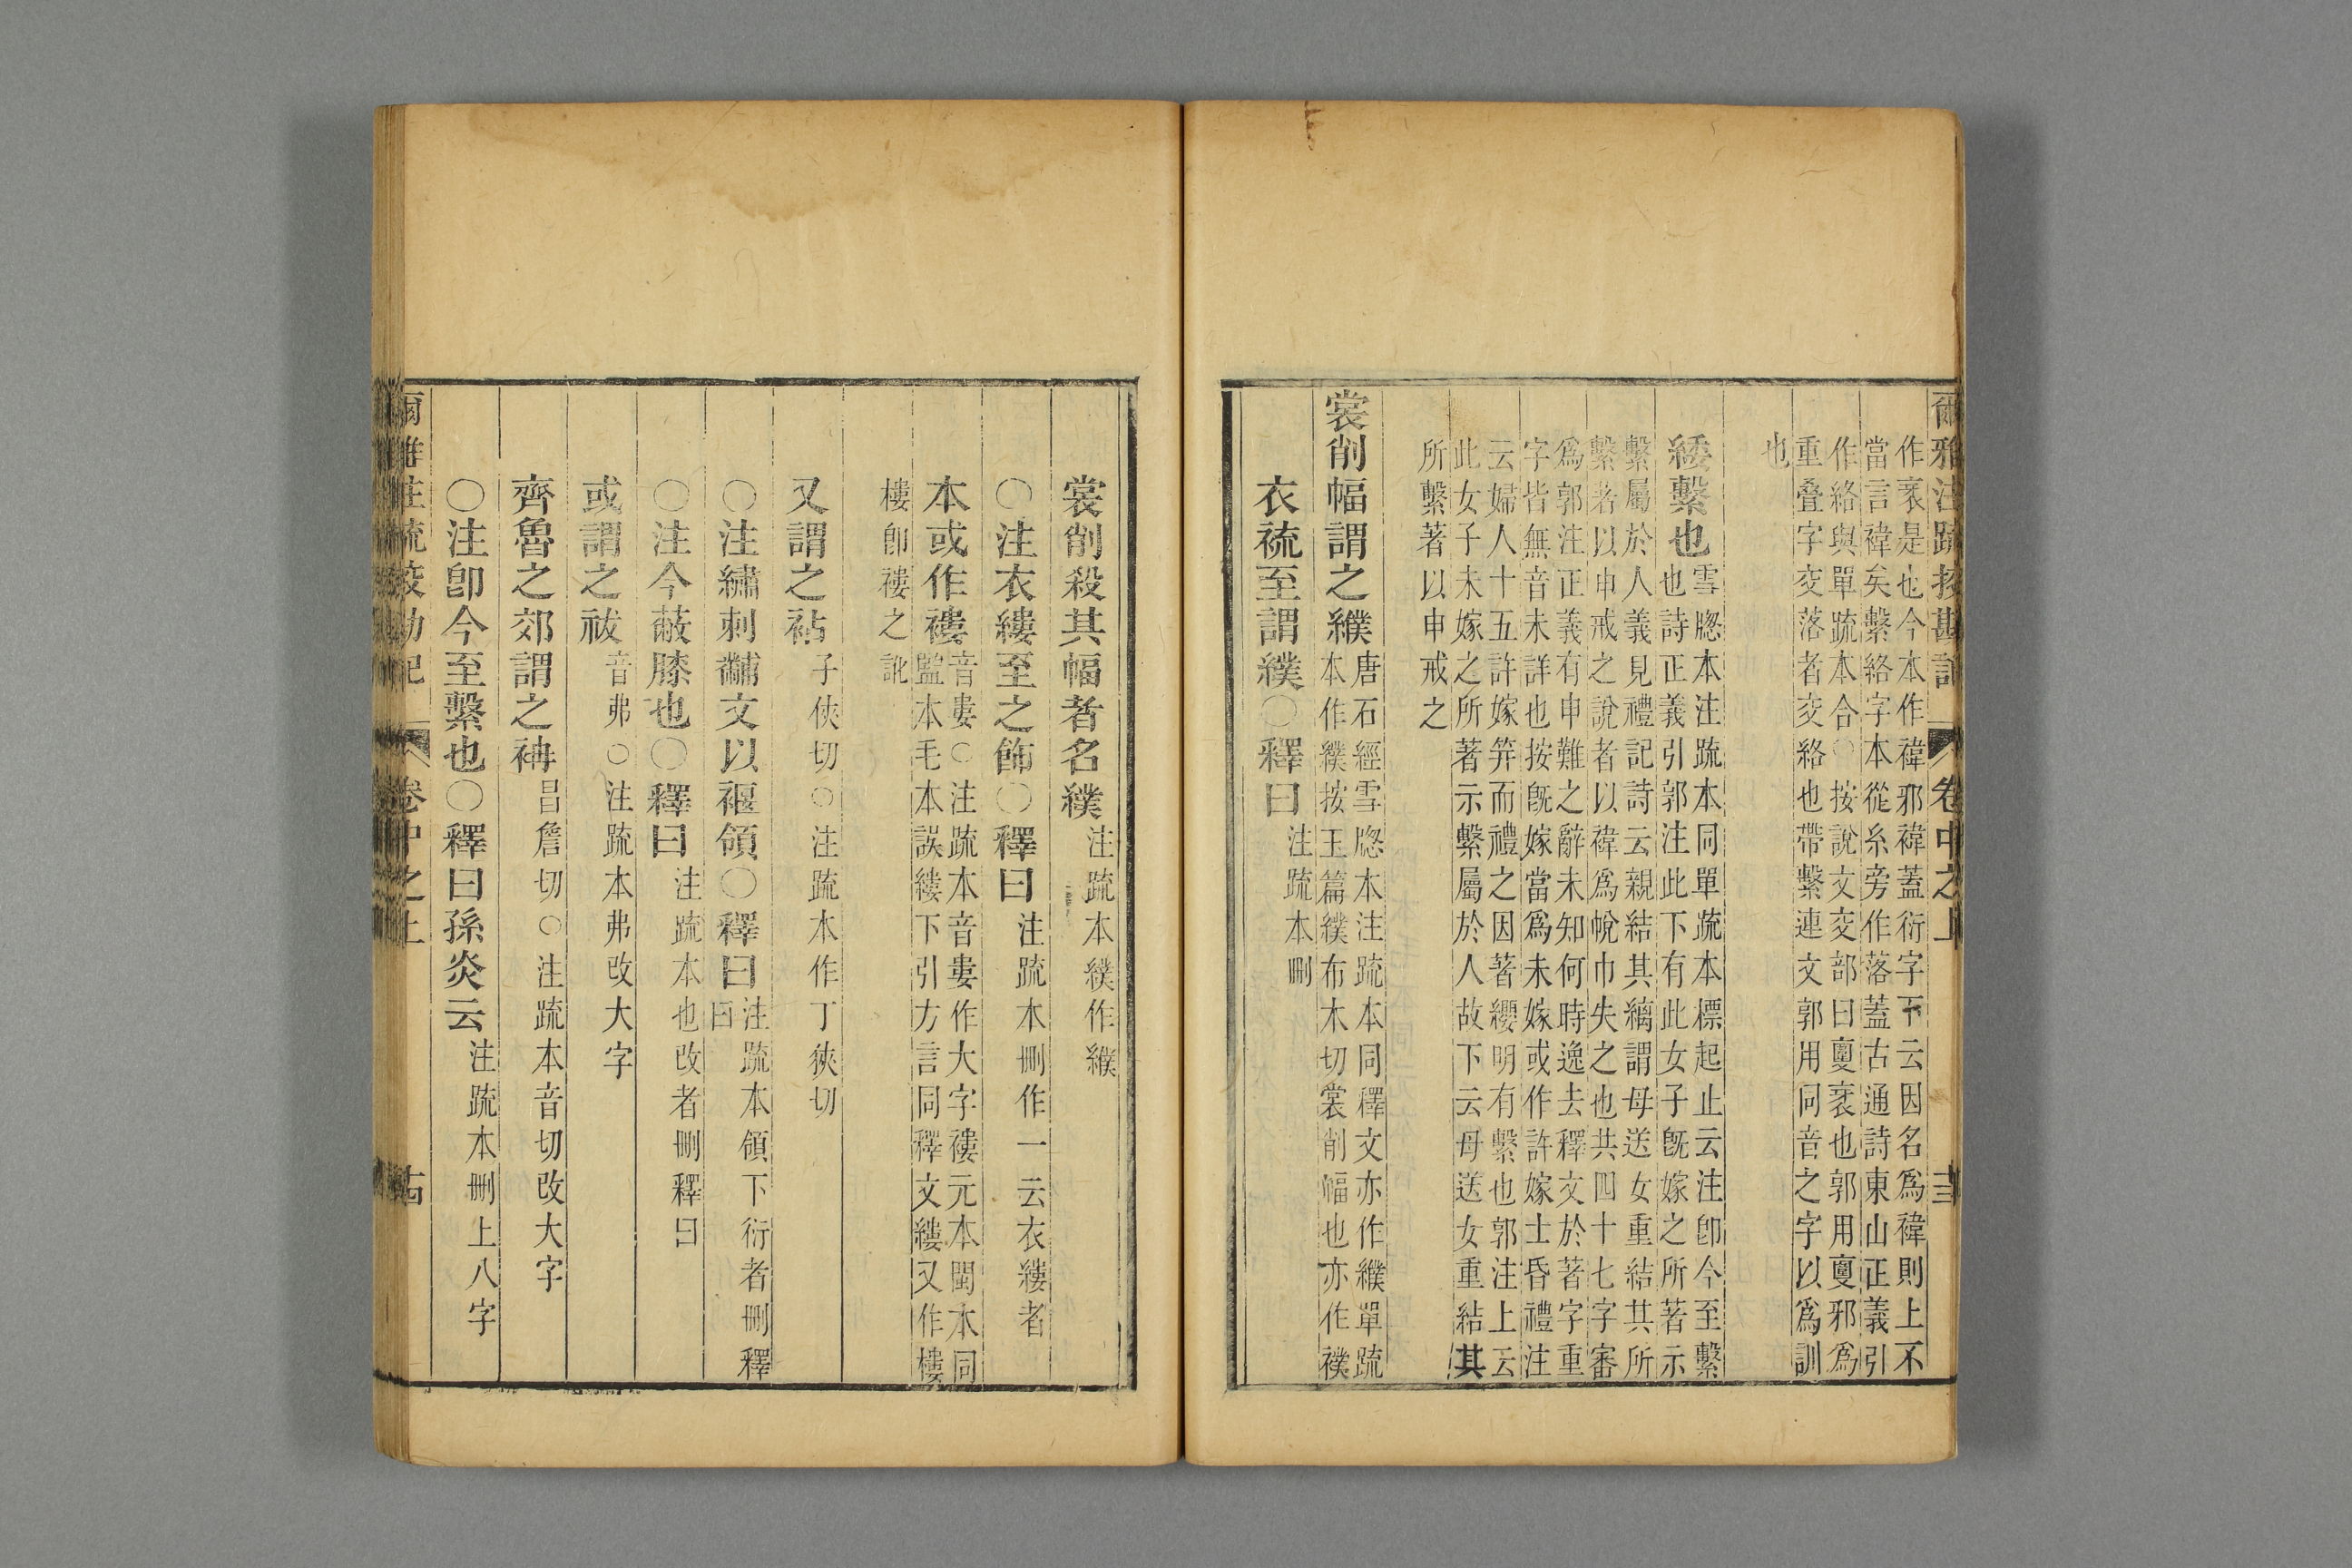 爾雅注疏挍勘記 卷中之上 十三
作袤是也今本作褘邪褘蓋衍字下云因名爲褘則上不
當言褘矣繫絡字本從糸旁作落蓋古通詩東山正義引
作絡與單疏本合○按說文交部曰𡕢袤也郭用𡕢邪爲
重叠字交落者交絡也帶繫連文郭用同音之字以爲訓
也
緌繫也
雪牎本注疏本同單疏本標起止云注卽今至繫
也詩正義引郭注此下有此女子旣嫁之所著示
繫屬於人義見禮記詩云親結其縭謂母送女重結其所
繫著以申戒之說者以褘爲帨巾失之也共四十七字審
爲郭注正義有申難之辭未知何時逸去釋文於著字重
字皆無音未詳也按旣嫁當爲未嫁或作許嫁士昏禮注
云婦人十五許嫁笄而禮之因著纓明有繫也郭注上云
此女子未嫁之所著示繫屬於人故下云母送女重結其
所繫著以申戒之
裳削幅謂之纀
唐石經雪牎本注疏本同釋文亦作纀單疏
本作襆按玉篇襆布木切裳削幅也亦作襥
衣裗至謂襆○釋曰 注疏本刪
裳削殺其幅者名襆 注疏本襆作纀
○注衣縷至之飾○釋曰 注疏本刪作一云衣縷者
本或作褸
音婁○注疏本音婁作大字褸元本閩本同
監本毛本誤縷下引方言同釋文縷又作樓
樓卽褸之訛
又謂之袩 子俠切○注疏本作丁狹切
○注繡刺黼文以褗領○釋曰
注疏本領下衍者刪釋
曰
○注今蔽膝也○釋曰 注疏本也改者刪釋曰
或謂之祓 音弗○注疏本弗改大字
齊魯之郊謂之袡 昌詹切○注疏本音切改大字
○注卽今至繫也○釋曰孫炎云 注疏本刪上八字
爾雅注疏挍勘記 卷中之上 十四